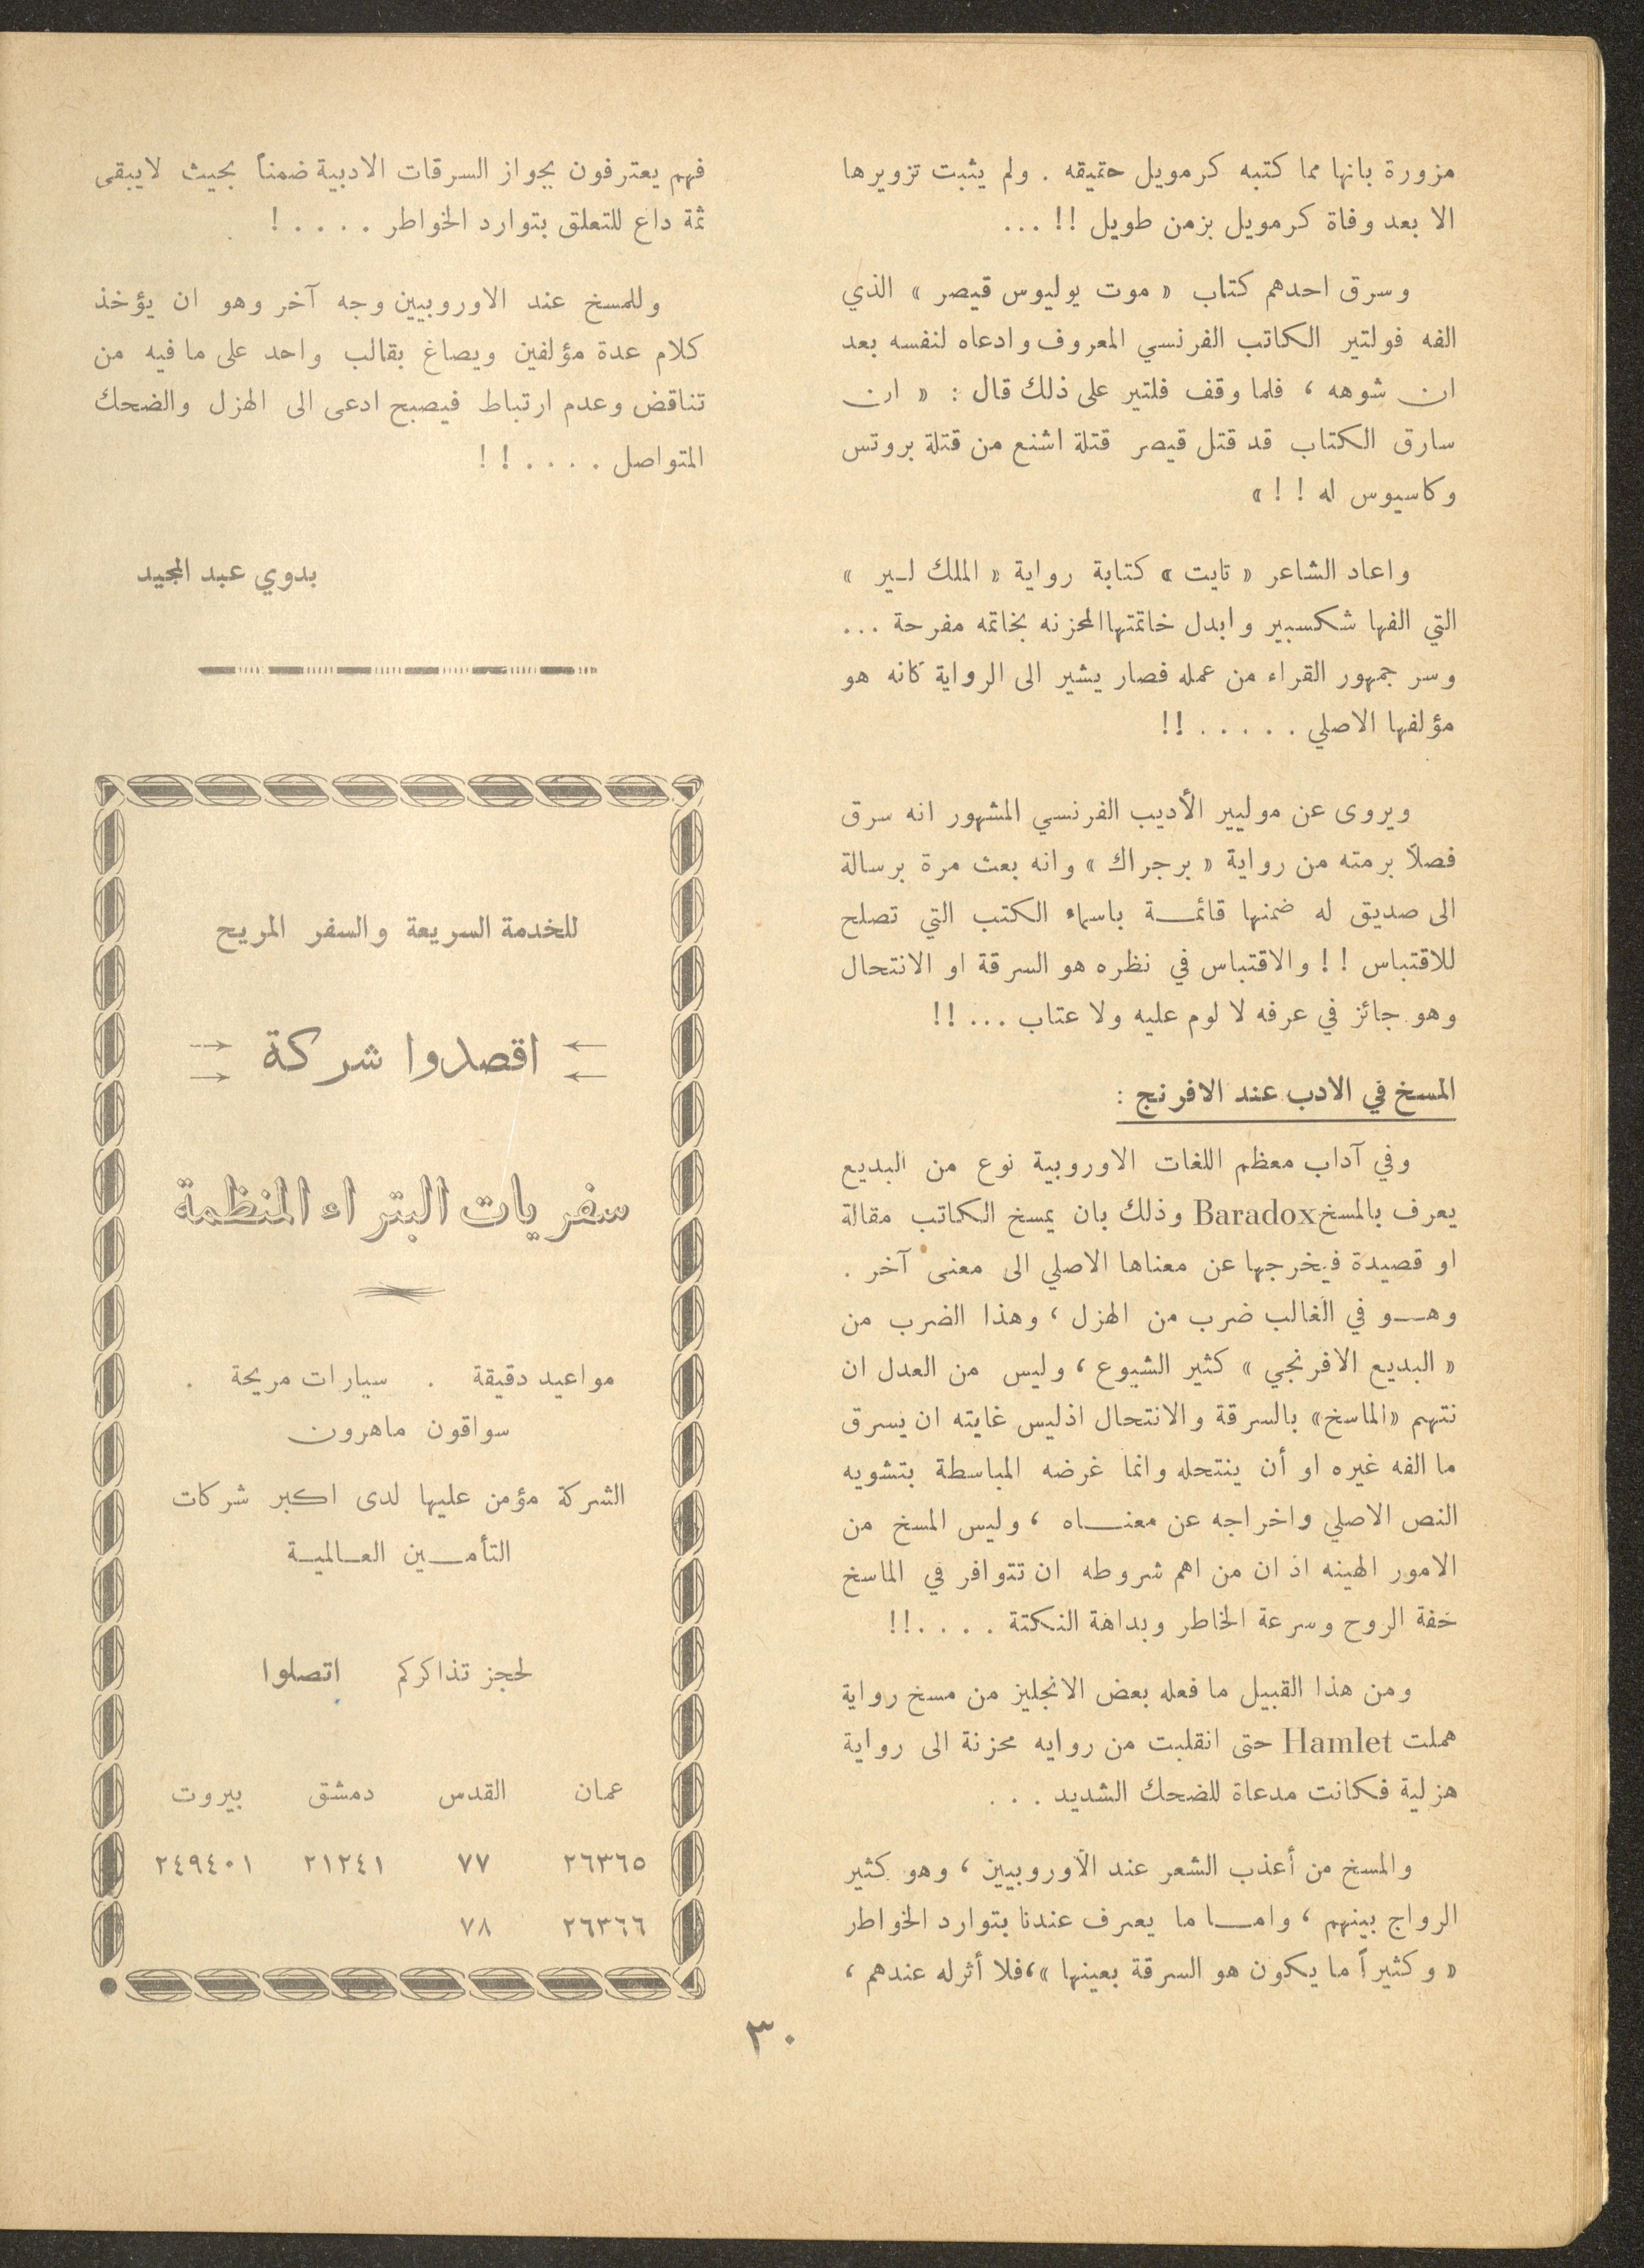 مزورة بانها مما كتبه كرمويل حتميقه . ولم يثبت تزويرها
الا بعد وفاة كرمويل بزمن طويل !! ...
وسرق احدهم كتاب « موت يوليوس قيصر » الذي
الفه فولتير الكاتب الفرنسي المعروف وادعاه لنفسه بعد
ان شوهه ، فلما وقف فلتير على ذلك قال : « ان
سارق الكتاب قد قتل قيصر قتلة اشنع من قتلة بروتس
وكاسيوس له ! ! »
واعاد الشاعر « تايت » كتابة رواية « الملك لـير »
التي الفها شكسبير وابدل خاتمتها المحزنه بخاتمه مفرحة ...
وسر جمهور القراء من عمله فصار يشير الى الرواية كانه هو
مؤلفها الاصلي . . . . . !!
ويروى عن موليير الأديب الفرنسي المشهور انه سرق
فصلاً برمته من رواية « برجراك » وانه بعث مرة برسالة
الى صديق له ضمنها قائمـــة باسماء الكتب التي تصلح
للاقتباس ! ! والاقتباس في نظره هو السرقة او الانتحال
وهو جائز في عرفه لا لوم عليه ولا عتاب ... !!
المسخ في الادب عند الافرنج :
وفي آداب معظم اللغات الاوروبية نوع من البديع
يعرف بالمسخ Baradox وذلك بان يمسخ الكاتب مقالة
او قصيدة فيخرجها عن معناها الاصلي الى معنى آخر .
وهــو في الغالب ضرب من الهزل ، وهذا الضرب من
« البديع الافرنجي » كثير الشيوع ، وليس من العدل ان
نتهم «الماسخ» بالسرقة والانتحال اذليس غايته ان يسرق
ما الفه غيره او أن ينتحله وانما غرضه المباسطة بتشويه
النص الاصلي واخراجه عن معنـــاه ، وليس المسخ من
الامور الهينه اذ ان من اهم شروطه ان تتوافر في الماسخ
خفة الروح وسرعة الخاطر وبداهة النكتة . . . .!!
ومن هذا القبيل ما فعله بعض الانجليز من مسخ رواية
هملت Hamlet حتى انقلبت من روايه محزنة الى رواية
هزلية فكانت مدعاة للضحك الشديد . . .
والمسخ من أعذب الشعر عند الاوروبيين ، وهو كثير
الرواج بينهم ، وامـــا ما يعرف عندنا بتوارد الخواطر
« وكثيراً ما يكون هو السرقة بعينها »،فلا أثرله عندهم ،
فهم يعترفون بجواز السرقات الادبية ضمناً بحيث لايبقى
ثمة داع للتعلق بتوارد الخواطر . . . . !
وللمسخ عند الاوروبيين وجه آخر وهو ان يؤخذ
كلام عدة مؤلفين ويصاغ بقالب واحد على ما فيه من
تناقض وعدم ارتباط فيصبح ادعى الى الهزل والضحك
المتواصل . . . . ! !
بدوي عبد المجيد
للخدمة السريعة والسفر المريح
اقصدوا شركة
سفريات البتراء المنظمة
مواعيد دقيقة . سيارات مريحة .
سواقون ماهرون
الشركة مؤمن عليها لدى اكبر شركات
التأمــين العــالميــة
لحجز تذاكركم اتصلوا
عمان القدس دمشق بيروت
٢٦٣٦٥ ٧٧ ٢١٢٤١ ٢٤٩٤٠١
٢٦٣٦٦ ٧٨
٣٠